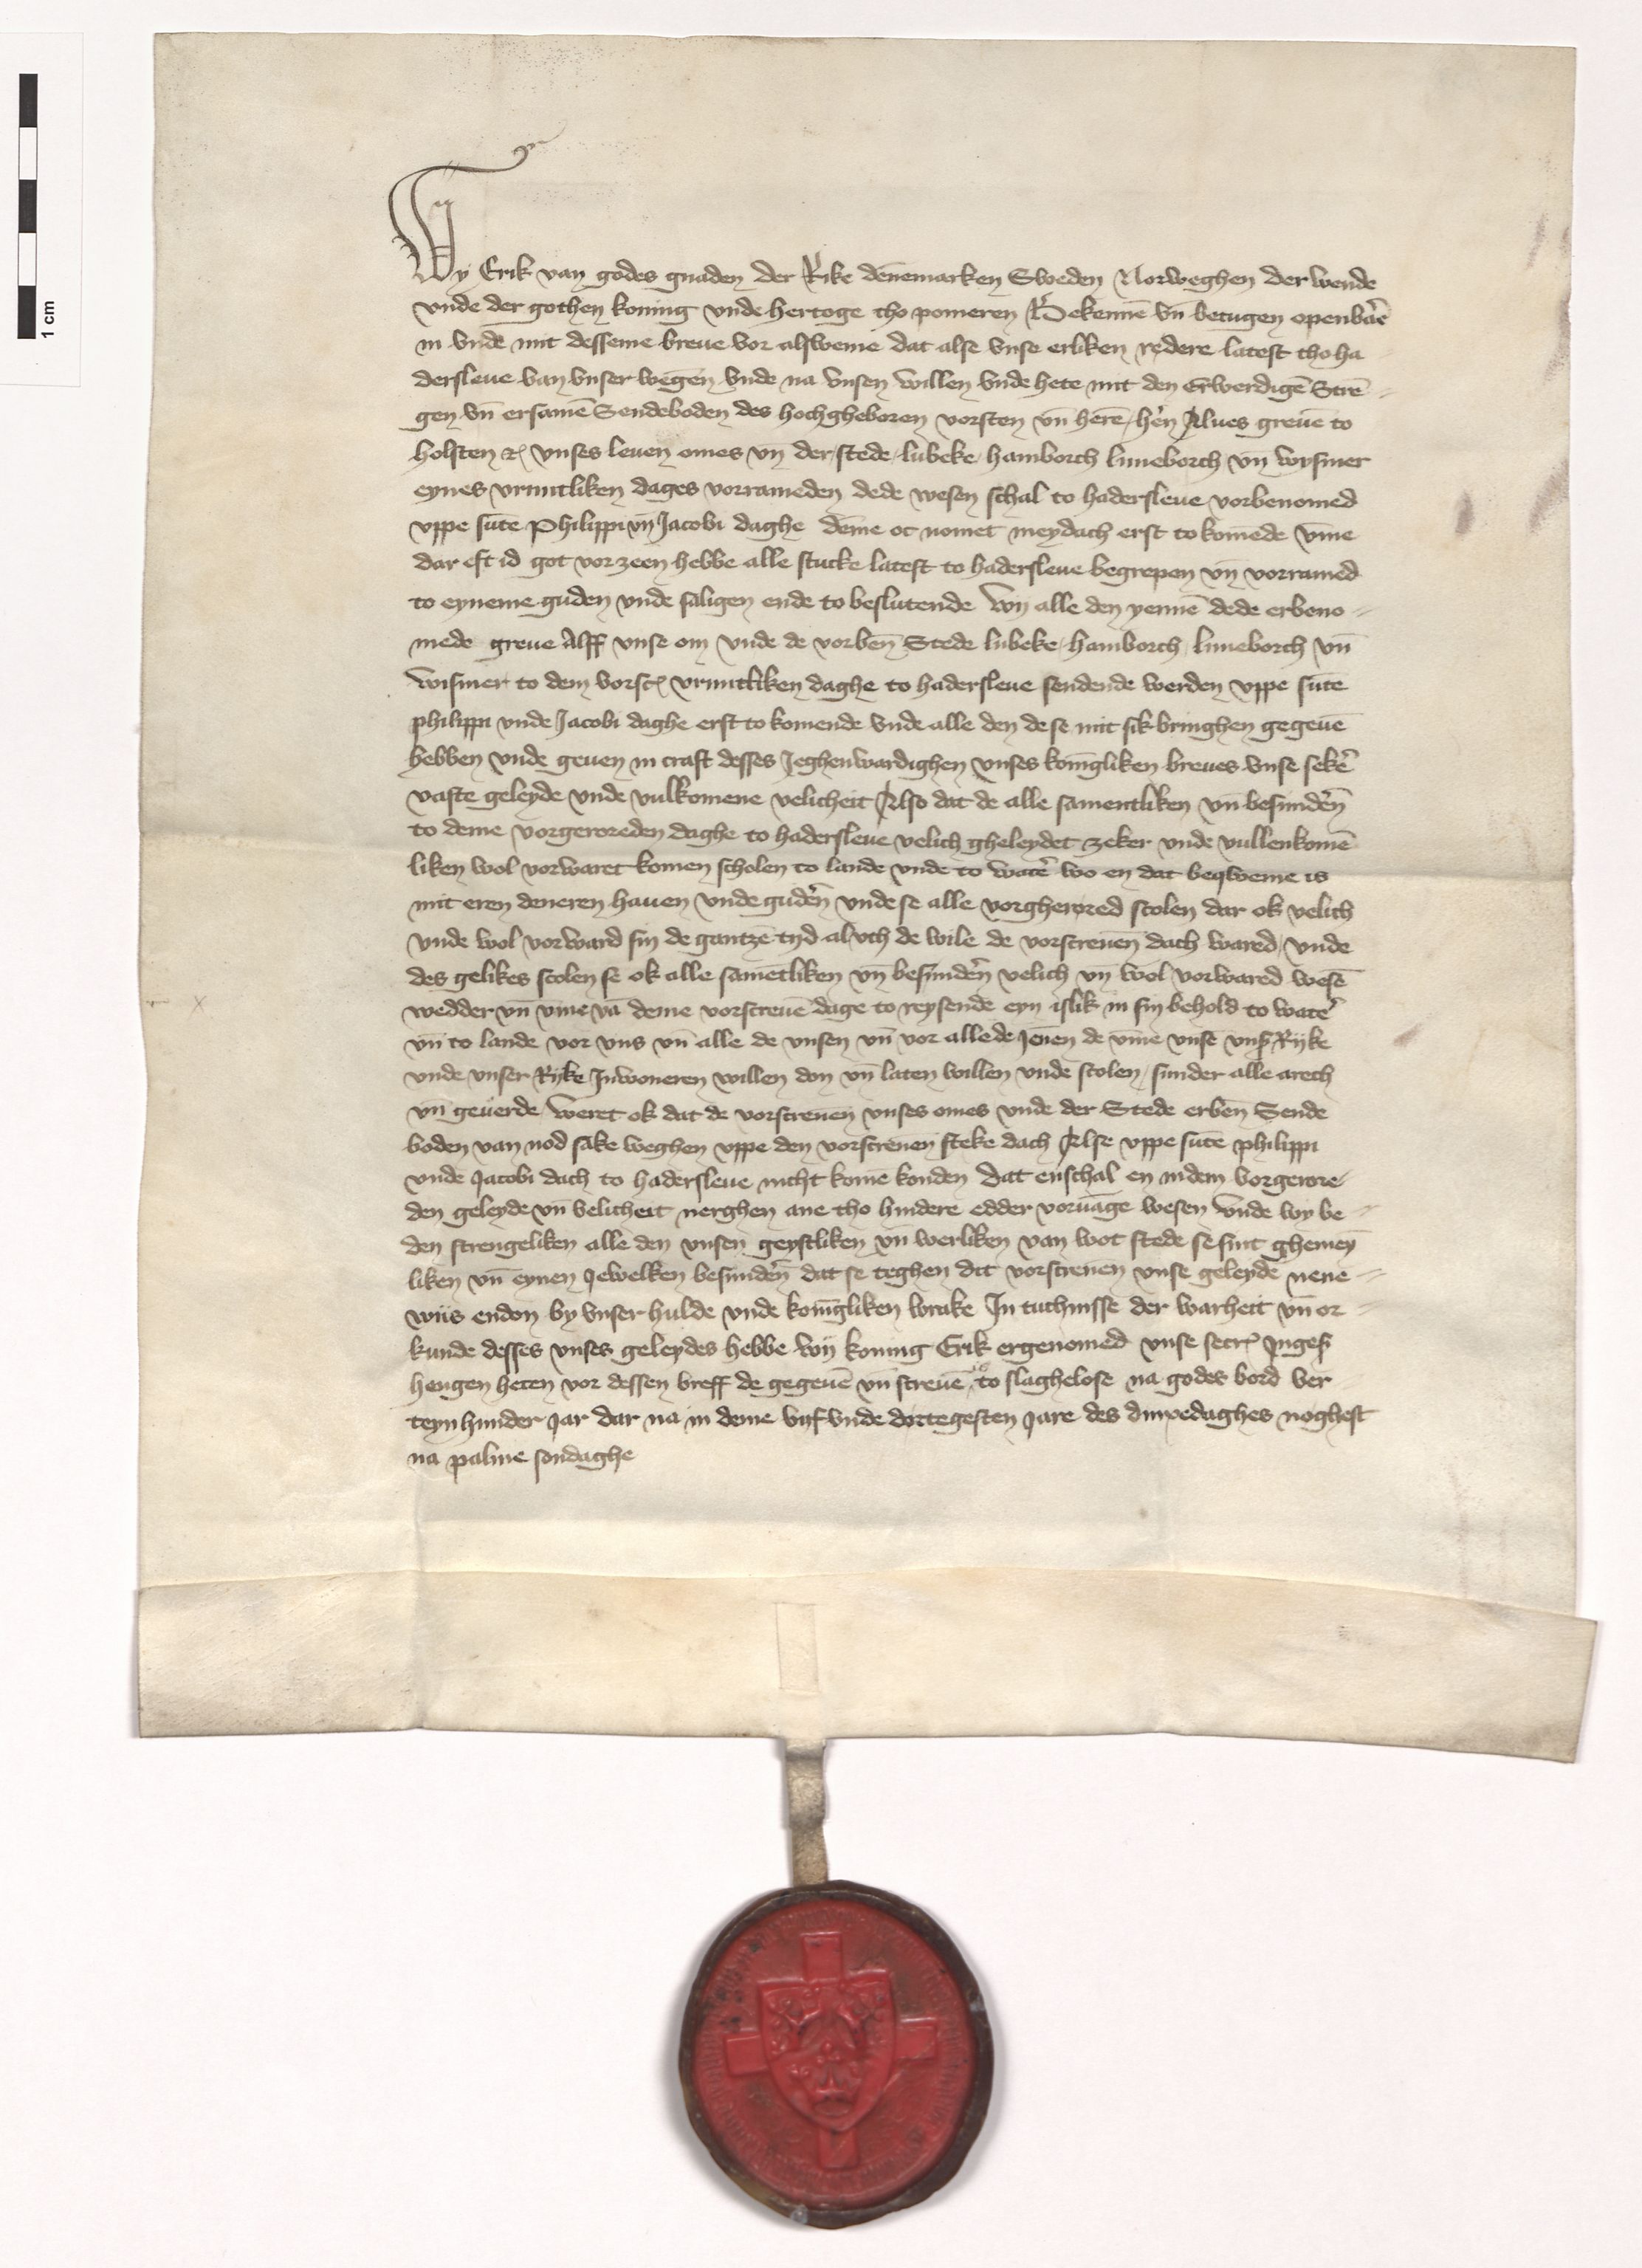 1 cm
Wy Erik van godes gnaden der Rike dēnemarken Sweden Norweghen der wende
vnde der gothen koning vnde hertoge tho pomeren Bekennē vn̄ betugen openbar̄
in vnde mit desseme breue vor alsweme dat alse vnse erliken redere latest tho ha
dersleue van vnser wegen vnde na vnsen willen vnde hete mit den Erwerdigē Strē
gen vn̄ ersamē Sendeboden des hochgheboren vorsten vn̄ herē her̄n Alues greuē to
holsten ⁊c̄ vnses leuen omes vn̄ der stede lubeke hamborch luneborch vn̄ wysmer
eynes vruntliken dages vorrameden dede wesen schal to hadersleue vorbenomed
vppe sūte Philippi vn̄ Jacobi daghe dēme oc nomet meydach erst to komēde vm̄e
dar eft id got vorzeen hebbe alle stucke latest to hadersleue begrepen vn̄ vorramed
to eyneme guden vnde saligen ende to beslutende Wy alle den yennē dede erbeno
mede greue Alff vnse om vnde de vorben̄ Stede lubeke hamborch luneborch vn̄
wismer to dem vorscr̄ vruntliken daghe to hadersleue sendende werden vppe sūte
philippi vnde Jacobi daghe erst to komende vnde alle den de se mit sik bringhen gegeuē
hebben vnde geuen in craft desses Jeghenwardighen vnses konīgliken breues vnse seker̄
vaste geleyde vnde vulkomene velicheit Also dat de alle samentliken vn̄ besunder̄n
to deme vorgeroreden daghe to hadersleue velich gheleydet zeker vnde vullenkomē
liken wol vorwaret komen scholen to lande vnde to water̄ wo en dat beqweme is
mit eren deneren hauen vnde guder̄n vnde se alle vorgherored scolen dar ok velich
vnde wol vorward sin de gantzē tyd al vth de wile de vorscreuen̄ dach wared vnde
des gelikes scolen se ok alle samētliken vn̄ besunder̄n velich vn̄ wol vorwared wesē
wedder vn̄ vm̄e vā deme vorscreuē dage to reysende eyn islik in sin behold to water̄
vn̄ to lande vor vns vn̄ alle de vnsen vn̄ vor alle de Jenen de vm̄e vnsē vnser Rijke
vnde vnser Rijke Inwoneren willen don vn̄ laten willen vnde scolen sunder alle arech
vn̄ geuerde Weret ok dat de vorscreuen vnses omes vnde der Stede erben̄ Sende
boden van nod sake weghen vppe den vorscreuen steke dach Alse vppe sūte philippi
vnde Jacobi dach to hadersleue nicht komē konden Dat enschal en in dem vorgerore
den geleyde vn̄ velicheit nerghen ane tho hindere edder voruāge wesen vnde wy be
den strengeliken alle den vnsen geystliken vn̄ werliken van wot stede se sint ghemey
liken vn̄ eynen Jewelken besunder̄n dat se teghen dit vorscreuen vnse geleyde nene
wiis endon by vnser hulde vnde konīgliken wrake In tuchnisse der warheit vn̄ or
kunde desses vnses geleydes hebbe wy koning Erik ergenomed vnse secr̄ Inges̄
hengen heten vor dessen breff de gegeuē vn̄ screuē is to slaghelose na godes bord ver
teyn hunder Jar dar na in deme vijf vnde dortegesten Jare des dinxedaghes neghest
na palme sondaghe